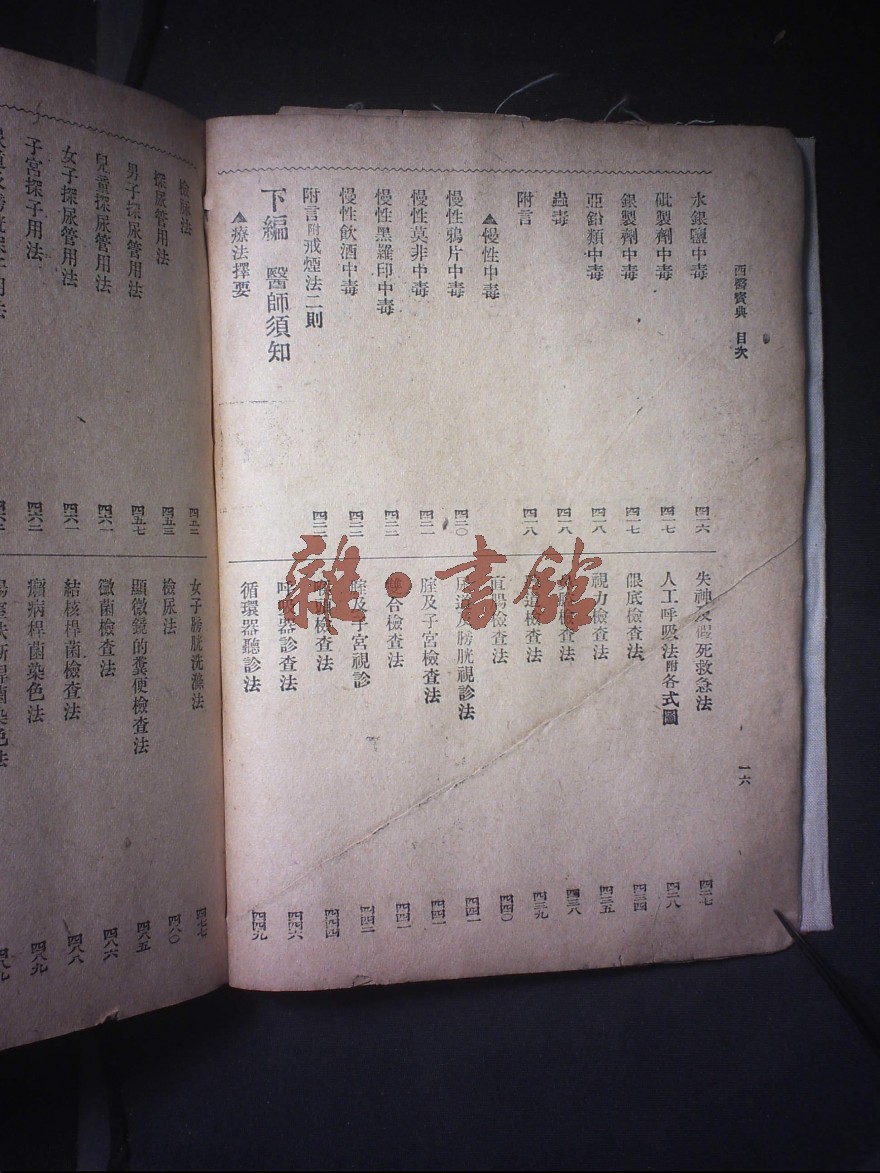 西醫寶典 目次
一六
水銀鹽中毒 四一六
砒製劑中毒 四一七
銀製劑中毒 四一七
亞鉛類中毒 四一八
蟲毒 四一八
附言 四一八
▲慢性中毒
慢性鴉片中毒 四二〇
慢性莫非中毒 四二一
慢性黑羅印中毒
慢性飲酒中毒
附言附戒煙法二則
下編 醫師須知
▲療法擇要
失神及假死救急法 四二七
人工呼吸法附各式圖 四二八
眼底檢查法 四三四
視力檢查法 四三五
檢查法 四三八
道檢查法 四三九
直腸檢查法 四四〇
尿道及膀胱視診法 四四一
腟及子宮檢查法 四四一
雙合檢查法 四四一
腟及子宮視診 四四二
檢查法 四四四
呼吸器診查法 四四六
循環器聽診法 四四九
檢尿法 四五二
探尿管用法 四五三
男子探尿管用法 四五七
兒童探尿管用法 四六一
女子探尿管用法 四六一
子宮探子用法 四六二
女子膀胱洗滌法 四七七
檢尿法 四八〇
顯微鏡的糞便檢查法 四八五
黴菌檢查法 四八六
結核桿菌檢查法 四八八
桿菌染色法 四八九
雜·書館